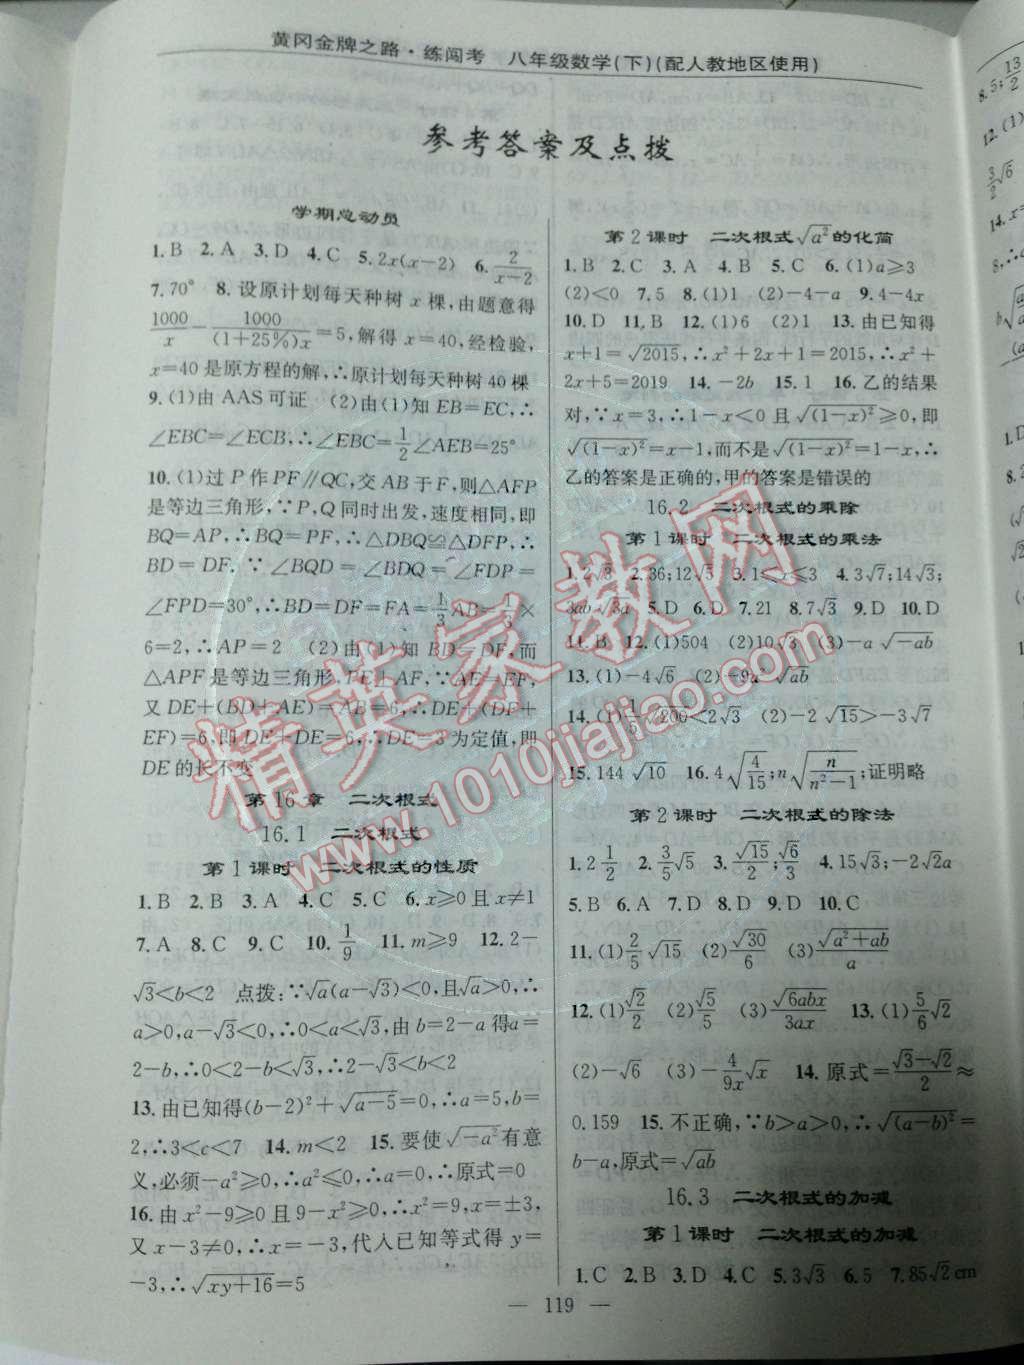 黄冈金牌之路·练闯考 八年级数学(下)(配人教地区使用)
参考答案及点拨
学期总动员
1.B 2.A 3.D 4.C 5.2x(x-2) 6.2/(x-2)
7.70° 8.设原计划每天种树x棵,由题意得
1000/x-1000/((1+25%)x)=5,解得x=40,经检验,
x=40是原方程的解,∴原计划每天种树40棵
9.(1)由AAS可证 (2)由(1)知EB=EC,∴
∠EBC=∠ECB,∴∠EBC=1/2∠AEB=25°
10.(1)过P作PF∥QC,交AB于F,则△AFP
是等边三角形,∵P,Q同时出发,速度相同,即
BQ=AP,∴BQ=PF,∴△DBQ≌△DFP,∴
BD=DF.∵∠BQD=∠BDQ=∠FDP=
∠FPD=30°,∴BD=DF=FA=1/3AB=1/3×
6=2,∴AP=2 (2)由(1)知BD=DF,而
△APF是等边三角形,PE⊥AF,∵AE=EF,
又DE+(BD+AE)=AB=6,∴DE+(DF+
EF)=6,即DE+DE=6,∴DE=3为定值,即
DE的长不变
第16章 二次根式
16.1 二次根式
第1课时 二次根式的性质
1.B 2.B 3.A 4.C 5.C 6.x≥0且x≠1
7.A 8.C 9.C 10.1/9 11.m≥9 12.2-
√3<b<2 点拨:∵√a(a-√3)<0,且√a>0,∴
a>0,a-√3<0,∴0<a<√3,由b=2-a得a=
2-b,∴0<2-b<√3,∴2-√3<b<2
13.由已知得(b-2)²+√(a-5)=0,∴a=5,b=
2,∴3<c<7 14.m<2 15.要使√(-a²)有意
义,必须-a²≥0,∴a²≤0,∴a=0,∴原式=0
16.由x²-9≥0且9-x²≥0,∴x²=9,x=±3,
又x-3≠0,∴x=-3,代入已知等式得y=
-3,∴√(xy+16)=5
第2课时 二次根式√a²的化简
1.B 2.C 3.A 4.B 5.C 6.(1)a≥3
(2)<0 7.5 8.(1)1 (2)-4-a 9.4-4x
10.D 11.B 12.(1)6 (2)1 13.由已知得
x+1=√2015,∴x²+2x+1=2015,∴x²+
2x+5=2019 14.-2b 15.1 16.乙的结果
对,∵x=3,∴1-x<0且√(1-x)²≥0,即
√(1-x)²=x-1,而不是√(1-x)²=1-x,∴
乙的答案是正确的,甲的答案是错误的
16.2 二次根式的乘除
第1课时 二次根式的乘法
1.2√3 2.36;12√5 3.1≤x≤3 4.3√7;14√3;
3ab√3a 5.D 6.D 7.21 8.7√3 9.D 10.D
11.B 12.(1)504 (2)10√3 (3)-a√(-ab)
13.(1)-4√6 (2)-9a²√ab
14.(1)1/5√200<2√3 (2)-2√15>-3√7
15.144√10 16.4√(4/15);n√(n/(n²-1));证明略
第2课时 二次根式的除法
1.2 1/2 2.3/5√5 3.√15/2;√6/3 4.15√3;-2√2a
5.B 6.A 7.D 8.D 9.D 10.C
11.(1)2/5√15 (2)√30/6 (3)√(a²+ab)/a
12.(1)√2/2 (2)√5/5 (3)√6abx/3ax 13.(1)5/6√2
(2)-√6 (3)-4/9x√x 14.原式=(√3-√2)/2≈
0.159 15.不正确,∵b>a>0,∴√(a-b)²=
b-a,原式=√ab
16.3 二次根式的加减
第1课时 二次根式的加减
1.C 2.B 3.D 4.C 5.3√3 6.5 7.85√2cm
— 119 —
精英家教网
www.1010jiajiao.com